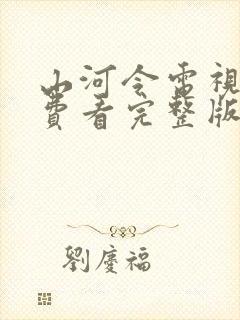 山河令電視
費看完整版
劉慶福